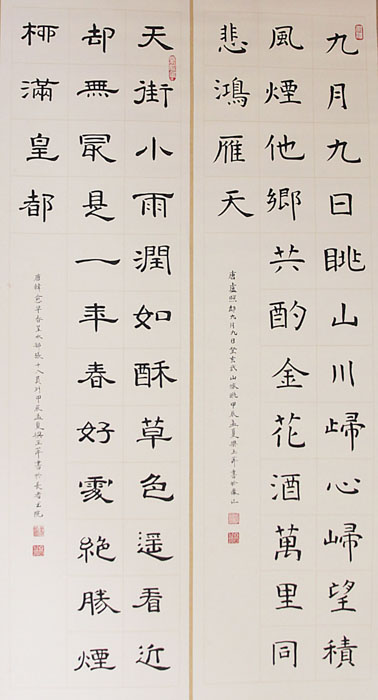 九月九日眺山川歸心歸望積
風煙他鄉共酌金花酒萬里同
悲鴻雁天
唐盧照鄰九月九日登玄武山旅眺甲辰孟夏
天街小雨潤如酥草色遥看近
却無冣是一年春好處絶勝煙
柳滿皇都
唐韓愈早春呈水部張十八員外甲辰孟夏